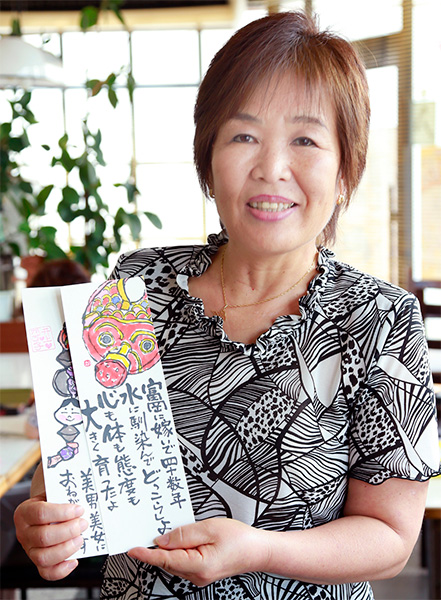 富岡に嫁いで四十数年
水に馴染んでどっこらしょ
心も体も態度も
大きく育ったよ
美男美女に